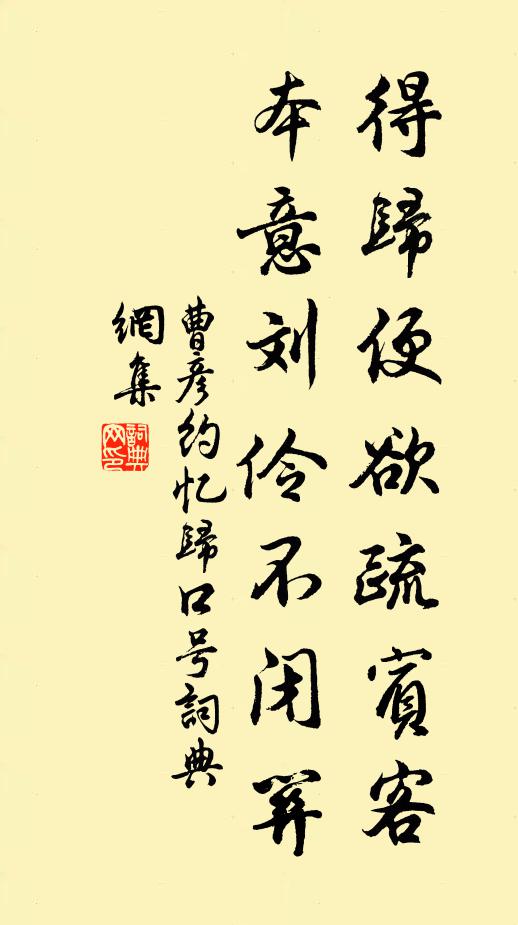 得歸便欲疏賓客
本意刘伶不闭關
曹彦约忆歸口号詞典
網集
詞典
网印